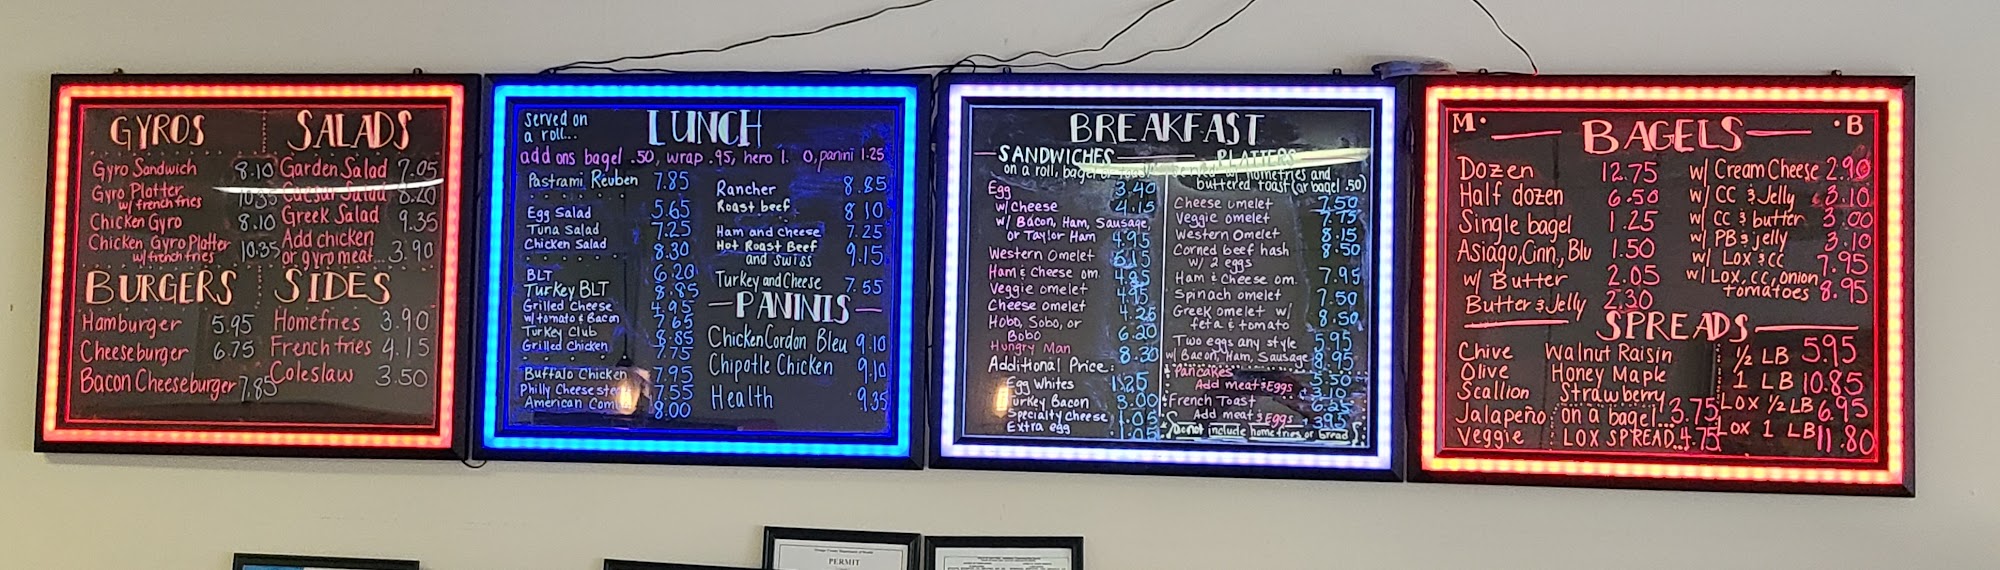 GYROS
Gyro Sandwich 8.10
Gyro Platter 10.35
w/ french fries
Chicken Gyro 8.10
Chicken Gyro Platter 10.35
w/ french fries
SALADS
Garden Salad 7.05
Caesar Salad 8.20
Greek Salad 9.35
Add chicken
or gyro meat... 3.90
BURGERS
Hamburger 5.95
Cheeseburger 6.75
Bacon Cheeseburger 7.85
SIDES
Homefries 3.90
French fries 4.15
Coleslaw 3.50
Served on
a roll...
LUNCH
add ons bagel .50, wrap .95, hero 1. 0, panini 1.25
Pastrami Reuben 7.85
Egg Salad 5.65
Tuna Salad 7.25
Chicken Salad 8.30
BLT 6.20
Turkey BLT 8.85
Grilled Cheese 4.95
w/ tomato & Bacon 7.65
Turkey Club 8.85
Grilled Chicken 7.75
Buffalo Chicken 7.95
Philly Cheese
American 8.00
Rancher 8.85
Roast beef 8.10
Ham and Cheese 7.25
Hot Roast Beef 9.15
and Swiss
Turkey and Cheese 7.55
PANINIS
Chicken Cordon Bleu 9.10
Chipotle Chicken 9.10
Health 9.35
BREAKFAST
SANDWICHES
on a roll,
Egg 3.40
w/ Cheese 4.15
w/ Bacon, Ham, Sausage,
or Taylor Ham 4.95
Western Omelet 5.15
Ham & Cheese om. 4.85
Veggie omelet 4.95
Cheese omelet 4.25
Hobo, Sobo, or
Bobo 6.20
Hungry Man 8.30
Additional Price:
Egg Whites 1.25
Turkey Bacon
Specialty Cheese
Extra egg
PLATTERS
homefries and
buttered toast (or bagel .50)
Cheese omelet 7.50
Veggie omelet 7.75
Western Omelet 8.15
Corned beef hash 8.50
w/ 2 eggs
Ham & Cheese om. 7.95
Spinach omelet 7.50
Greek omelet w/ 8.50
feta & tomato
Two eggs any style 5.95
w/ Bacon, Ham, Sausage 8.95
Pancakes 5.50
Add meat & Eggs
French Toast 6.25
Add meat & Eggs
Do not include home fries or bread
M. BAGELS .B
Dozen 12.75
Half dozen 6.50
Single bagel 1.25
Asiago, Cinn., Blu 1.50
w/ Butter 2.05
Butter & Jelly 2.30
w/ Cream Cheese 2.90
w/ CC & Jelly 3.10
w/ CC & butter 3.00
w/ PB & jelly 3.10
w/ LOX & CC 7.95
w/ LOX, CC, onion
tomatoes 8.95
SPREADS
Chive
Olive
Scallion
Jalapeño
Veggie
Walnut Raisin
Honey Maple
Strawberry
on a bagel... 3.75
LOX SPREAD.. 4.75
1/2 LB 5.95
1 LB 10.85
LOX 1/2 LB 6.95
LOX 1 LB 11.80
PERMIT